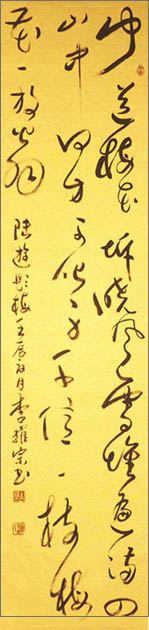 聞道梅花坼曉風雪堆遍滿四
山中何方可化身千億一樹梅
花一放翁
陸遊詠梅壬辰月李耀宗書